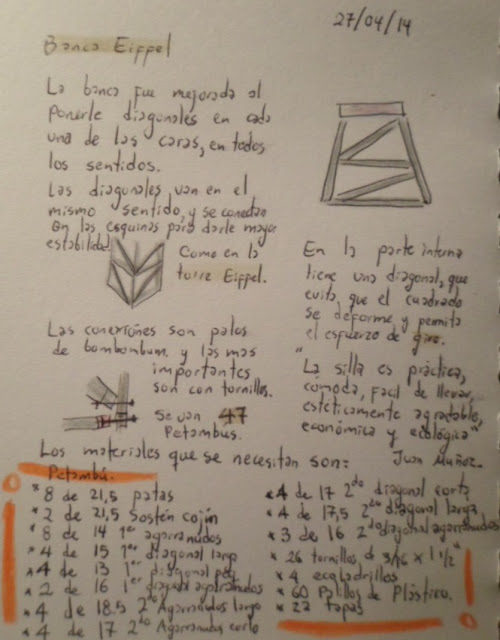 27/04/14
Banca Eiffel
La banca fue mejorada al
Ponerle diagonales en cada
una de las caras, en todos
los sentidos.
Las diagonales van en el
mismo sentido, y se conectan
en las esquinas para darle mayor
estabilidad.
Como en la
torre Eiffel.
Las conexiones son palos
de bombonbum. y las mas
importantes
son con tornillos.
Se van 47
Petambus.
En la parte interna
tiene una diagonal, que
evita, que el cuadrado
se deforme y permita
el esfuerzo de giro.
"La silla es práctica,
cómoda, facil de llevar,
estéticamente agradable,
económica y ecológica"
Juan Muñoz.
Los materiales que se necesitan son:
Petambú.
* 8 de 21,5 patas
* 2 de 21,5 Sostén cojín
* 8 de 14 1er agarranudos
* 4 de 15 1er diagonal larga
* 4 de 13 1er diagonal peq
* 2 de 16 1er diagonal agarranudos
* 4 de 18.5 2do Agarranudos largo
* 4 de 17 2do Agarranudos corto
* 4 de 17 2do diagonal corta
* 4 de 17,5 2do diagonal larga
* 3 de 16 2do diagonal agarranudos
* 26 tornillos de 3/16 x 1 1/2"
* 4 ecoladrillos
* 60 Palillos de Plástico.
* 22 tapas